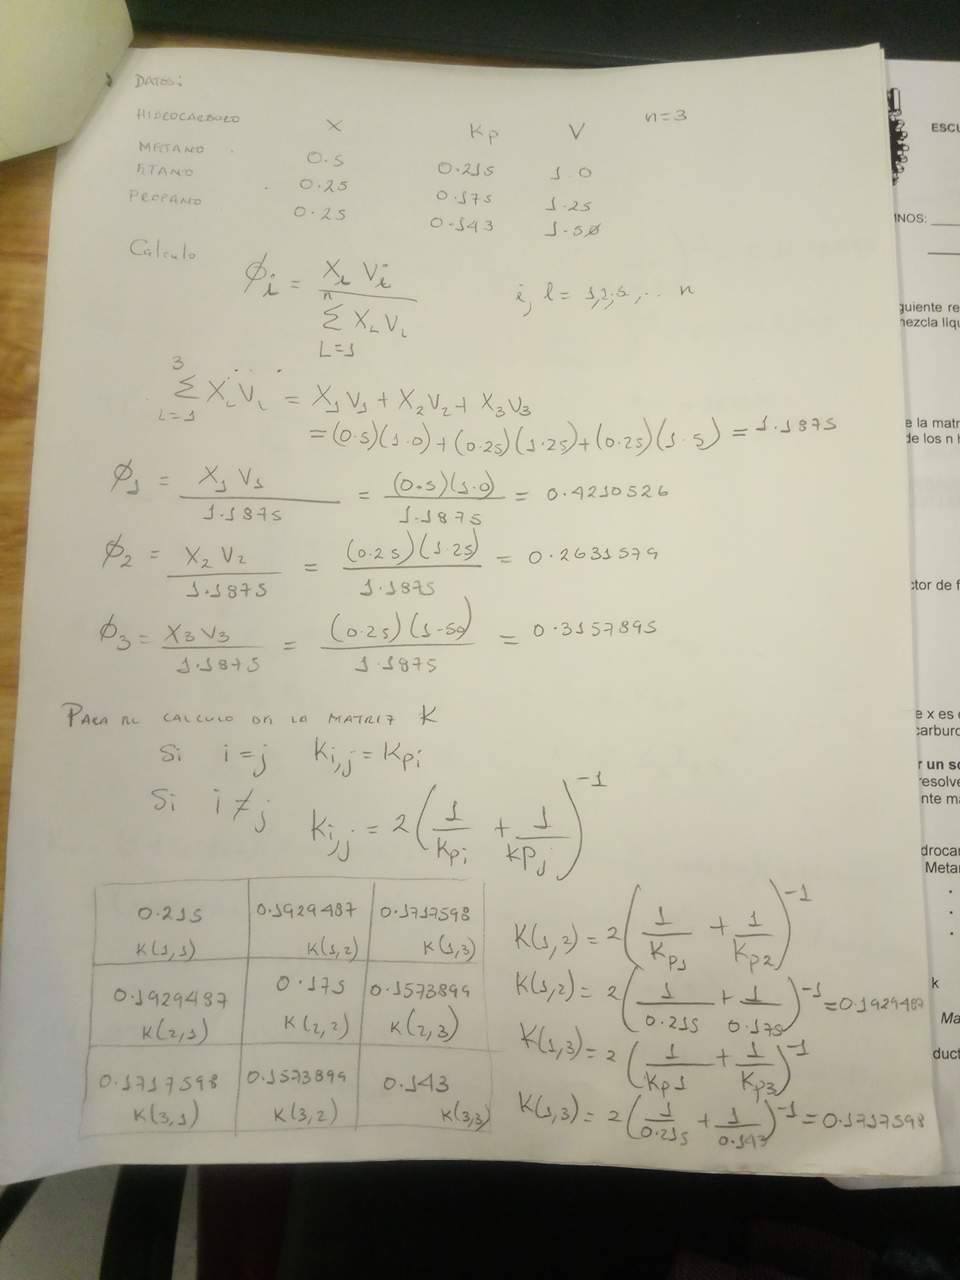 DATOS:
HIDROCARBURO X Kp V n=3
METANO 0.5 0.215 1.0
ETANO 0.25 0.175 1.25
PROPANO 0.25 0.143 1.50
Calculo
ϕi = Xi Vi / Σ(L=1, n) XL VL i, l = 1,2,3,... n
Σ(L=1, 3) XL VL = X1 V1 + X2 V2 + X3 V3
= (0.5)(1.0) + (0.25)(1.25) + (0.25)(1.5) = 1.1875
ϕ1 = X1 V1 / 1.1875 = (0.5)(1.0) / 1.1875 = 0.4210526
ϕ2 = X2 V2 / 1.1875 = (0.25)(1.25) / 1.1875 = 0.2631579
ϕ3 = X3 V3 / 1.1875 = (0.25)(1.50) / 1.1875 = 0.3157895
PARA EL CALCULO DE LA MATRIZ K
Si i = j Ki,j = Kpi
Si i ≠ j Ki,j = 2(1/Kpi + 1/KPj)^-1
0.215 0.1929487 0.1717598
K(1,1) K(1,2) K(1,3)
0.1929487 0.175 0.1573899
K(2,1) K(2,2) K(2,3)
0.1717598 0.1573899 0.143
K(3,1) K(3,2) K(3,3)
K(1,2) = 2(1/Kp1 + 1/Kp2)^-1
K(1,2) = 2(1/0.215 + 1/0.175)^-1 = 0.1929487
K(1,3) = 2(1/Kp1 + 1/Kp3)^-1
K(1,3) = 2(1/0.215 + 1/0.143)^-1 = 0.1717598
ESCU
NOS:
guiente re
mezcla liqu
e la matr
de los n h
ctor de f
e x es
carburo
r un s
resolve
nte ma
drocar
Metan
k
Ma
duct